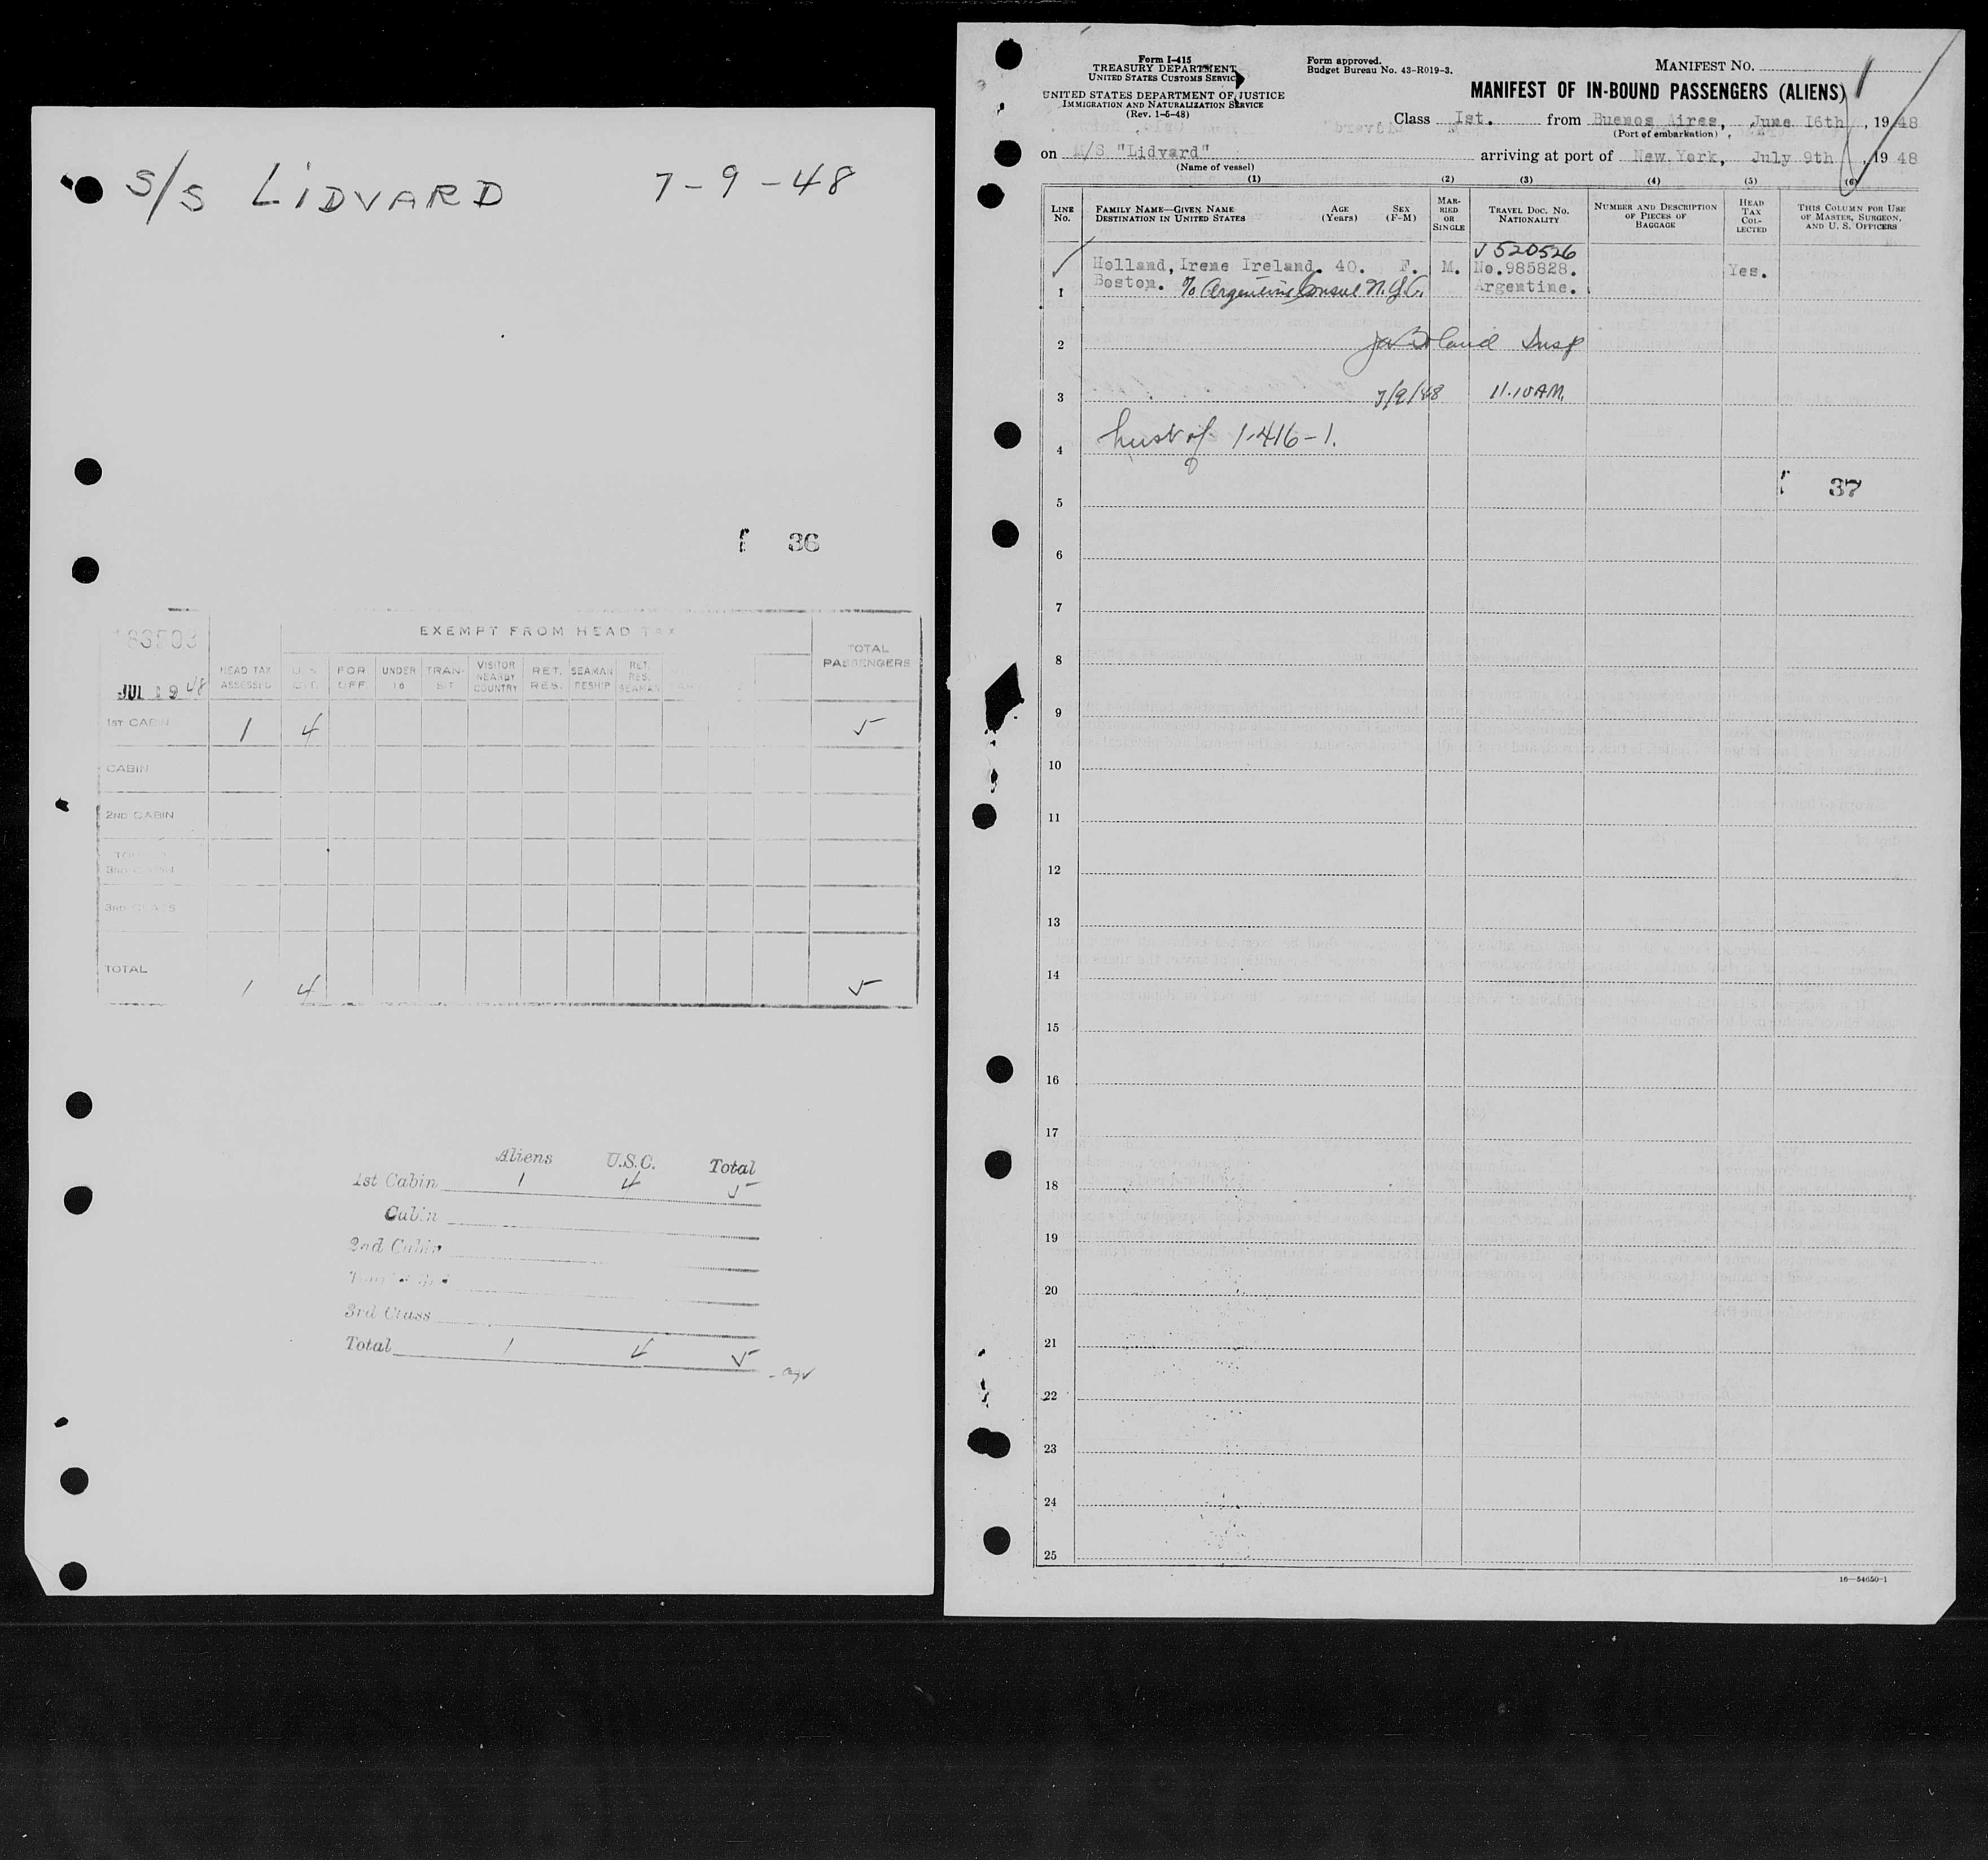 S/S LIDVARD 7-9-48
36
EXEMPT FROM HEAD TAX
JUL 19 48
HEAD TAX ASSESSED
U.S. CIT.
FOR OFF.
UNDER 16
TRAN-SIT
VISITOR NEARBY COUNTRY
RET. RES.
SEAMAN RESHIP
RET. RES. SEAMAN
TOTAL PASSENGERS
1ST CABIN 1 4 5
CABIN
2ND CABIN
3RD CLASS
TOTAL 1 4 5
Aliens U.S.C. Total
1st Cabin 1 4 5
Cabin
2nd Cabin
3rd Class
Total 1 4 5
Form I-415
TREASURY DEPARTMENT
UNITED STATES CUSTOMS SERVICE
UNITED STATES DEPARTMENT OF JUSTICE
IMMIGRATION AND NATURALIZATION SERVICE
(Rev. 1-5-48)
Form approved.
Budget Bureau No. 43-R019-3.
MANIFEST NO.
MANIFEST OF IN-BOUND PASSENGERS (ALIENS)
Class Ist. from Buenos Aires, June 16th, 1948
(Port of embarkation)
on M/S "Lidvard" arriving at port of New York, July 9th, 1948
(Name of vessel)
(1) (2) (3) (4) (5) (6)
LINE No.
FAMILY NAME—GIVEN NAME
DESTINATION IN UNITED STATES
AGE (Years)
SEX (F-M)
MAR-RIED OR SINGLE
TRAVEL DOC. NO. NATIONALITY
NUMBER AND DESCRIPTION OF PIECES OF BAGGAGE
HEAD TAX COL-LECTED
THIS COLUMN FOR USE OF MASTER, SURGEON, AND U. S. OFFICERS
V520526
Holland, Irene Ireland. 40. F. M. No.985828. Yes.
1 Boston. % Argentine Consul N.Y.C. Argentine.
2 Insp
3 7/9/48 11.10AM.
4 1-416-1.
37
5
6
7
8
9
10
11
12
13
14
15
16
17
18
19
20
21
22
23
24
25
16—54650-1